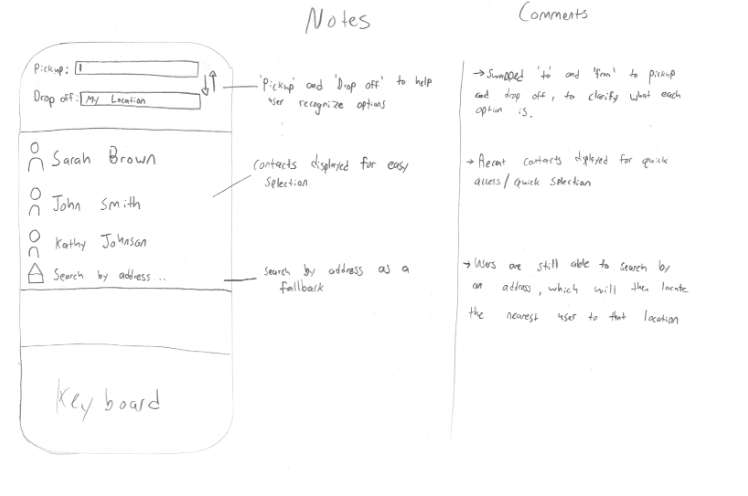 Notes
Comments
Pickup:
Drop off: My Location
Sarah Brown
John Smith
Kathy Johnson
Search by address...
Keyboard
'Pickup' and 'Drop off' to help
user recognize options
Contacts displayed for easy
selection
Search by address as a
fallback
→ Swapped 'to' and 'from' to pickup
and drop off, to clarify what each
option is.
→ Recent contacts diplayed for quick
access/quick selection
→ Users are still able to search by
an address, which will then locate
the nearest user to that location